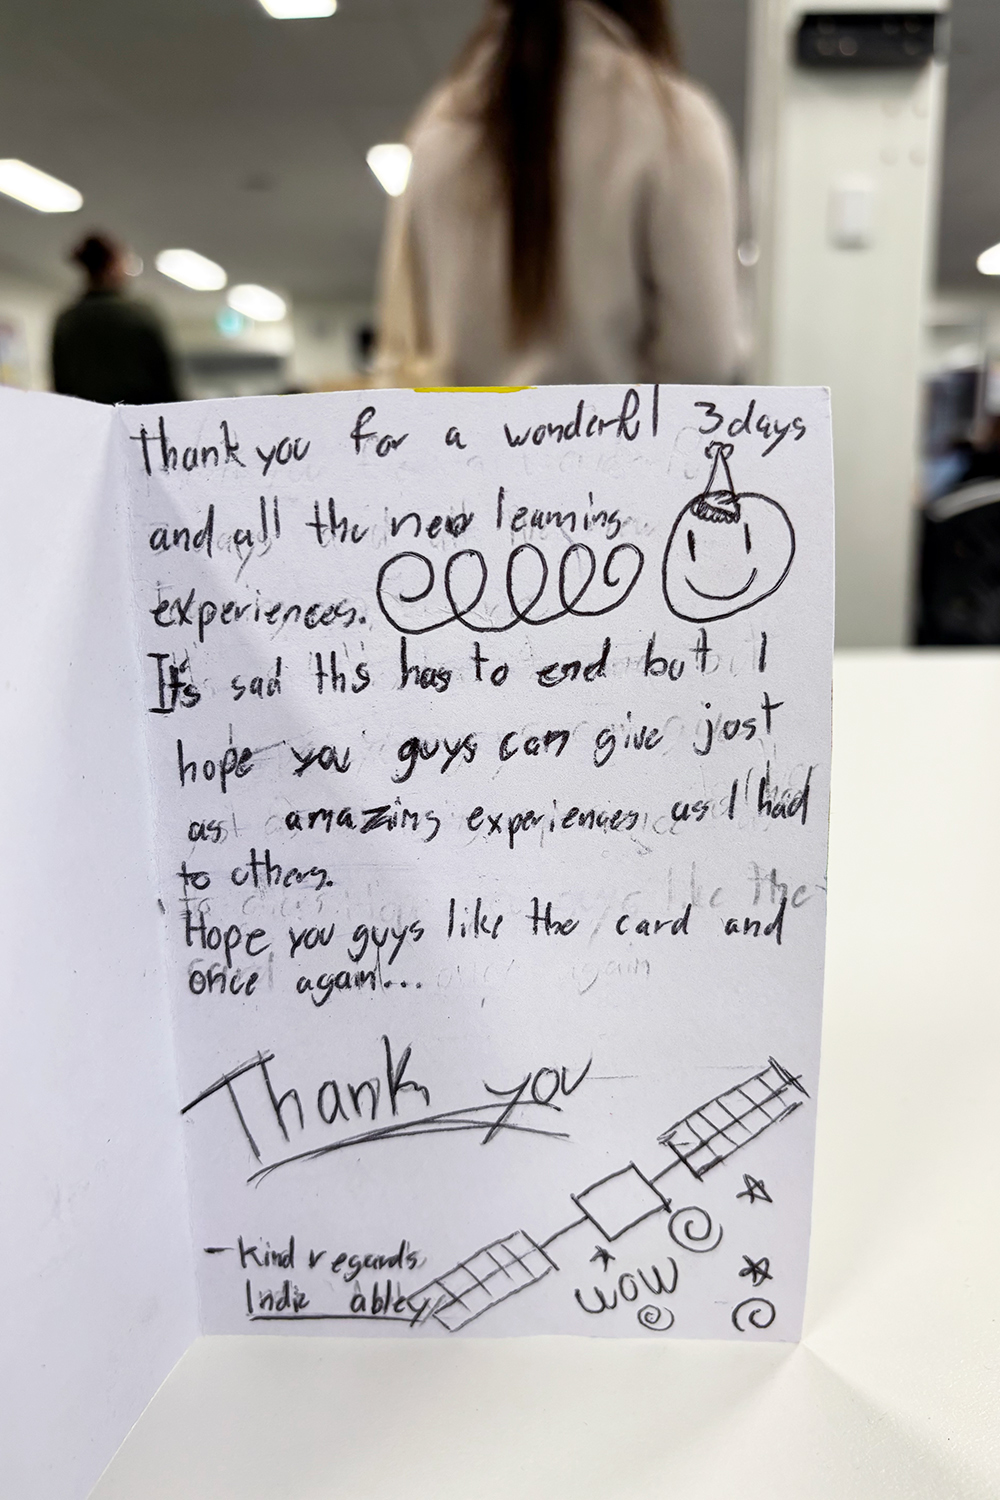 Thank you for a wonderful 3 days
and all the new learning
experiences.
It's sad this has to end but I
hope you guys can give just
as amazing experiences as I had
to others.
Hope you guys like the card and
once again...
Thank you
- Kind regards
Indie abley
WOW